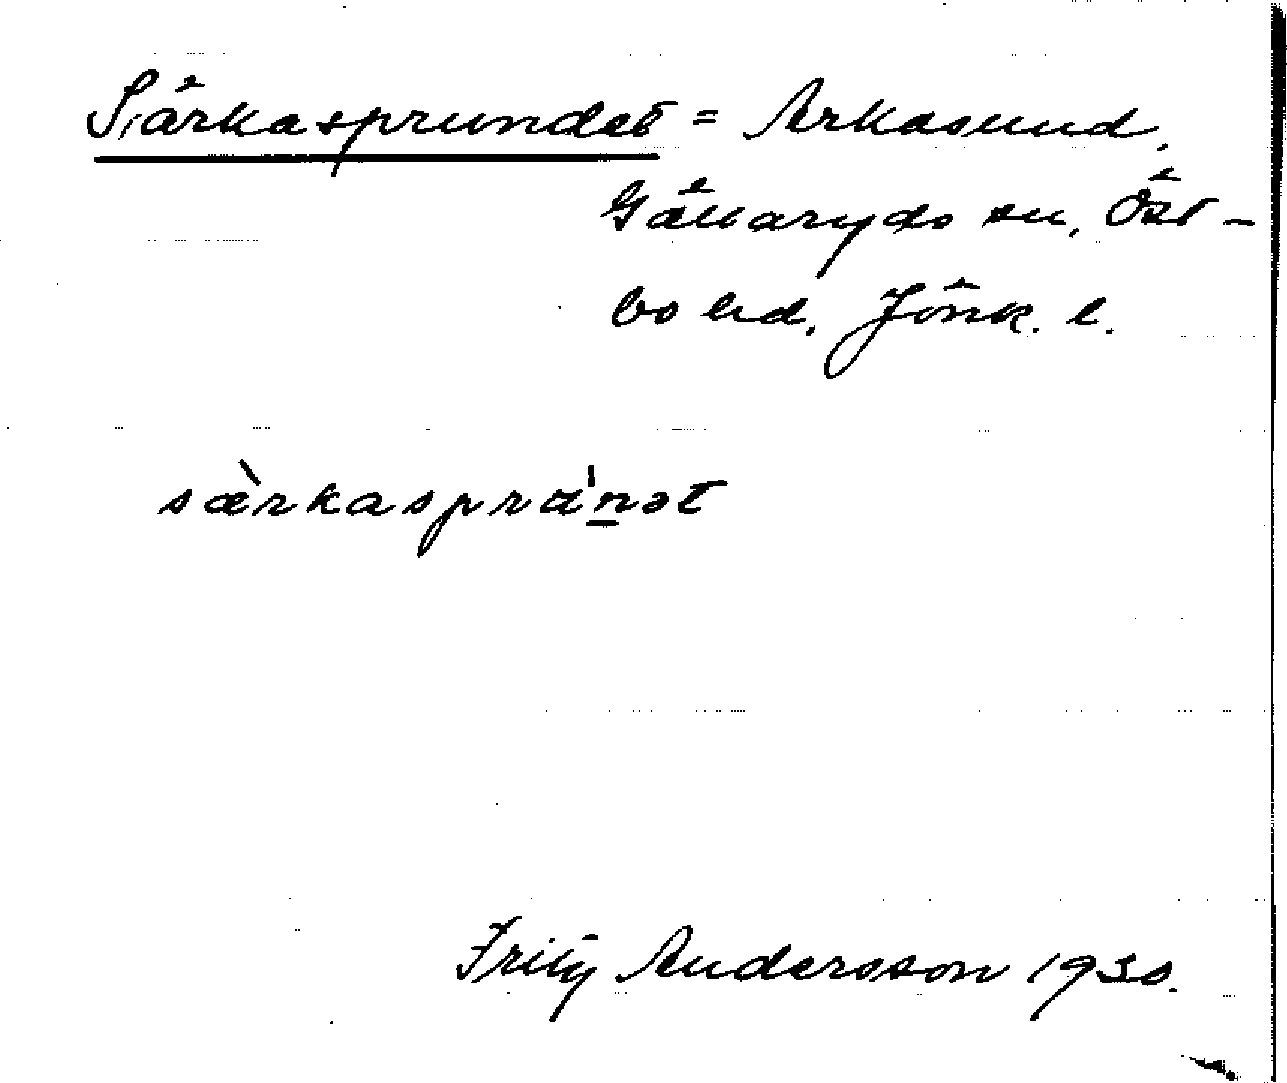 Särkasprundet = Arkasund,
Gällaryds sn, Öst-
bo hd, Jönk. l.
sæ̀rkasprúṉət
Fritz Andersson 1930.